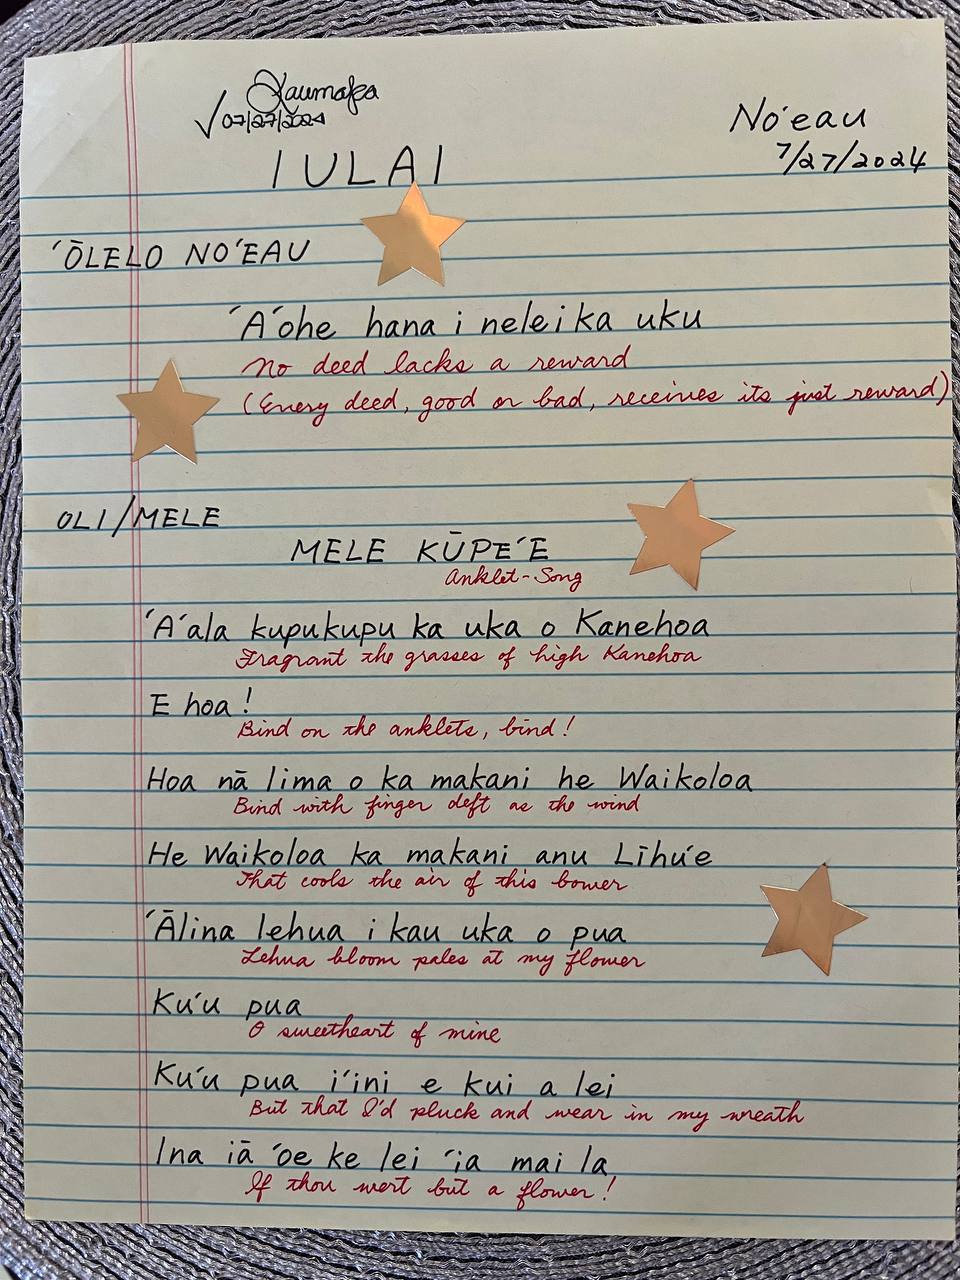 Kaumaka
✓ 07/27/2024
No'eau
7/27/2024
IULAI
'ŌLELO NO'EAU
'A'ohe hana i nele i ka uku
No deed lacks a reward
(Every deed, good or bad, receives its just reward)
OLI/MELE
MELE KŪPE'E
Anklet-Song
'A'ala kupukupu ka uka o Kanehoa
Fragrant the grasses of high Kanehoa
E hoa!
Bind on the anklets, bind!
Hoa nā lima o ka makani he Waikoloa
Bind with finger deft as the wind
He Waikoloa ka makani anu Līhu'e
That cools the air of this bower
'Ālina lehua i kau uka o pua
Lehua bloom pales at my flower
Ku'u pua
O sweetheart of mine
Ku'u pua i'ini e kui a lei
But that I'd pluck and wear in my wreath
Ina iā 'oe ke lei 'ia mai la
If thou wert but a flower!